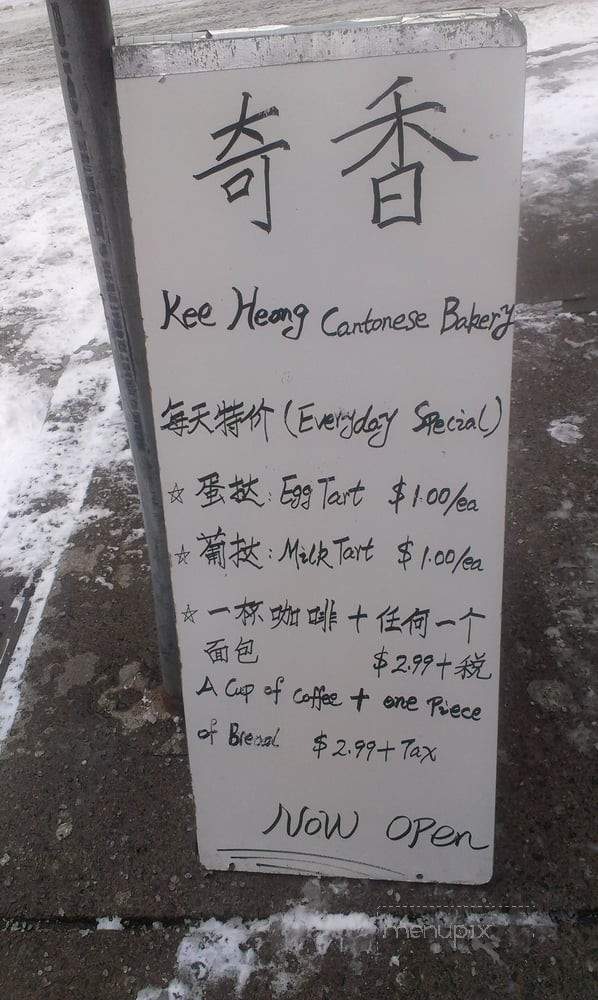 奇香
Kee Heong Cantonese Bakery
每天特价 (Everyday Special)
☆ 蛋挞: Egg Tart $1.00/ea
☆ 葡挞: Milk Tart $1.00/ea
☆ 一杯咖啡 + 任何一个
面包 $2.99+税
A Cup of Coffee + one Piece
of Bread $2.99+Tax
NOW OPen
menupix